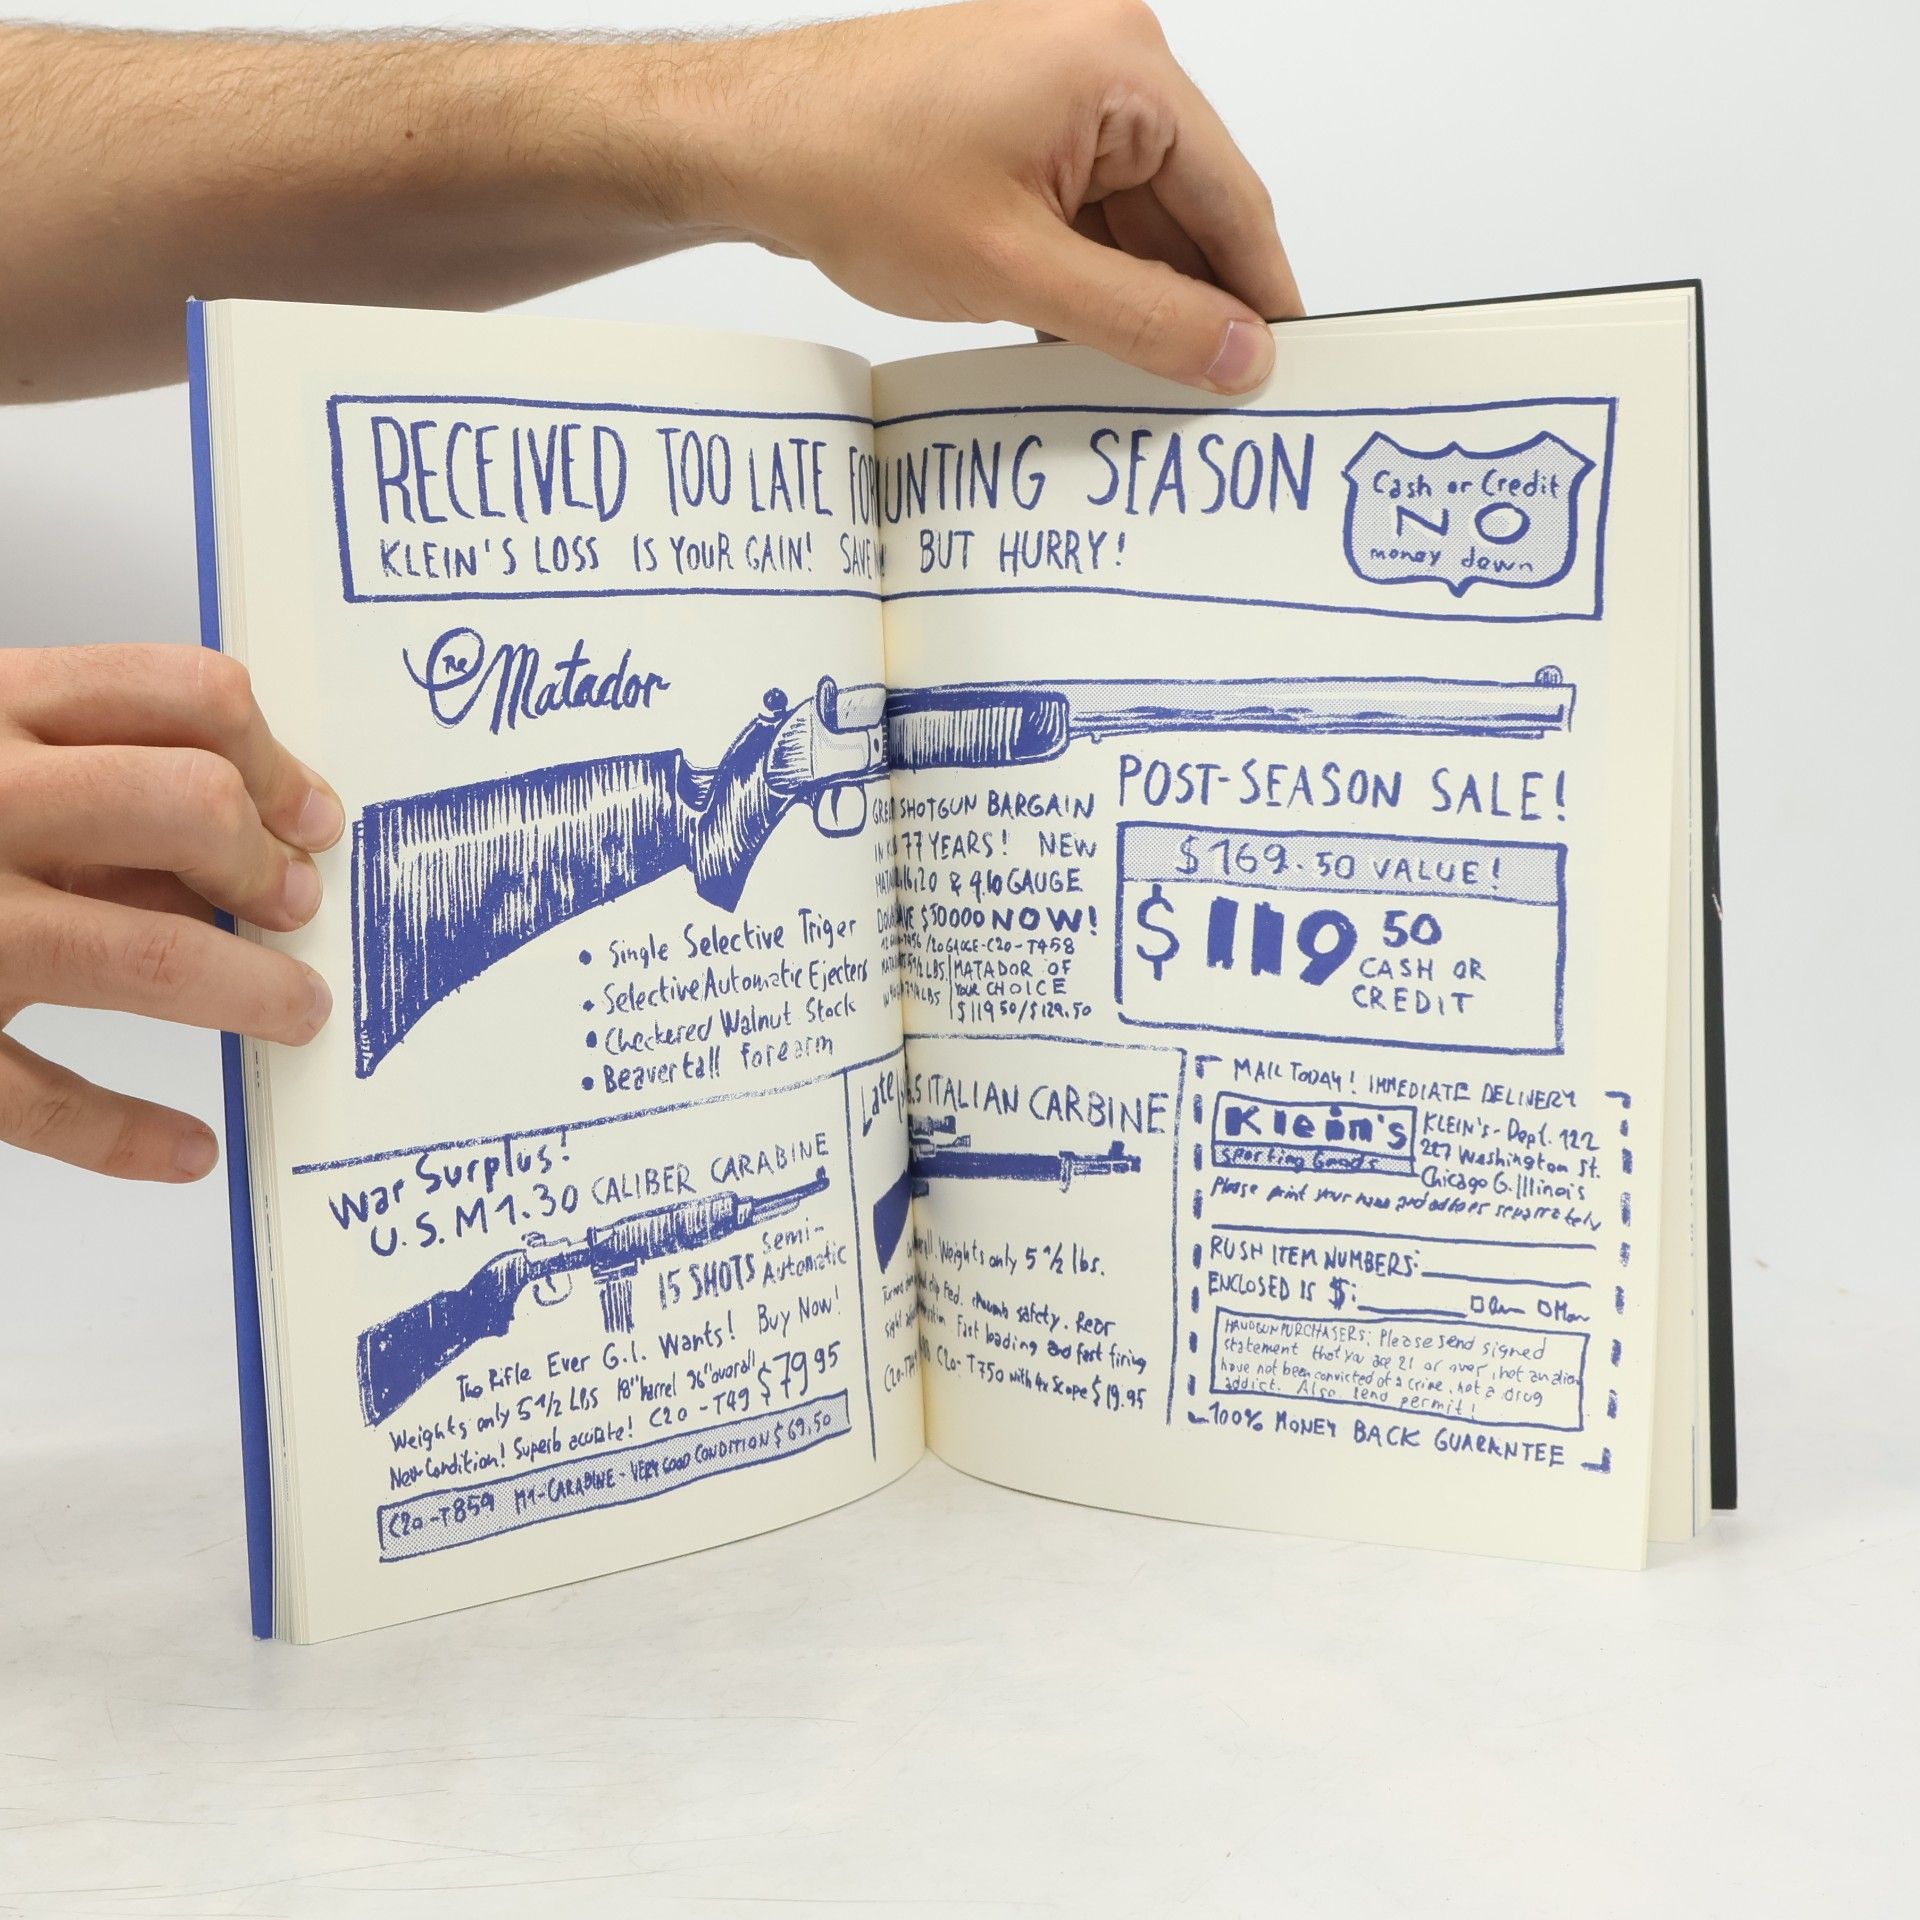 RECEIVED TOO LATE FOR UNTING SEASON
KLEIN'S LOSS IS YOUR GAIN! SAVE BUT HURRY!
Cash or Credit
NO
money down
The Matador
POST-SEASON SALE!
$169.50 VALUE!
$119 50
CASH OR
CREDIT
SHOTGUN BARGAIN
77 YEARS! NEW
16,20 & 9.10 GAUGE
$50000 NOW!
/20 GAUGE-C20-T958
LBS. MATADOR OF
LBS YOUR CHOICE
$119 50/$129.50
• Single Selective Triger
• Selective/Automatic Ejecters
• Checkered Walnut Stock
• Beavertall Forearm
War Surplus!
U.S. M1.30 CALIBER CARABINE
15 SHOTS Semi-
Automatic
The Rifle Ever G.I. Wants! Buy Now!
Weights only 5 1/2 LBS 18" barrel 36" overall $79 95
New Condition! Superb accurate! C20-T49
C20-T859 M1-CARABINE - VERY GOOD CONDITION $69,50
Late
ITALIAN CARBINE
Weights only 5 1/2 lbs.
clip fed. thumb safety. Rear
sight Fast loading and fast firing
C20-T750 with 4x Scope $19.95
MAIL TODAY! IMMEDIATE DELIVERY
Klein's
Sporting Goods
KLEIN'S - Dept. 122
227 Washington St.
Chicago G. Illinois
Please print your name and adress separately
RUSH ITEM NUMBERS:
ENCLOSED IS $:
HANDGUN PURCHASERS: Please send signed
statement that you are 21 or over, not an alien
have not been convicted of a crime, not a drug
addict. Also send permit!
100% MONEY BACK GUARANTEE